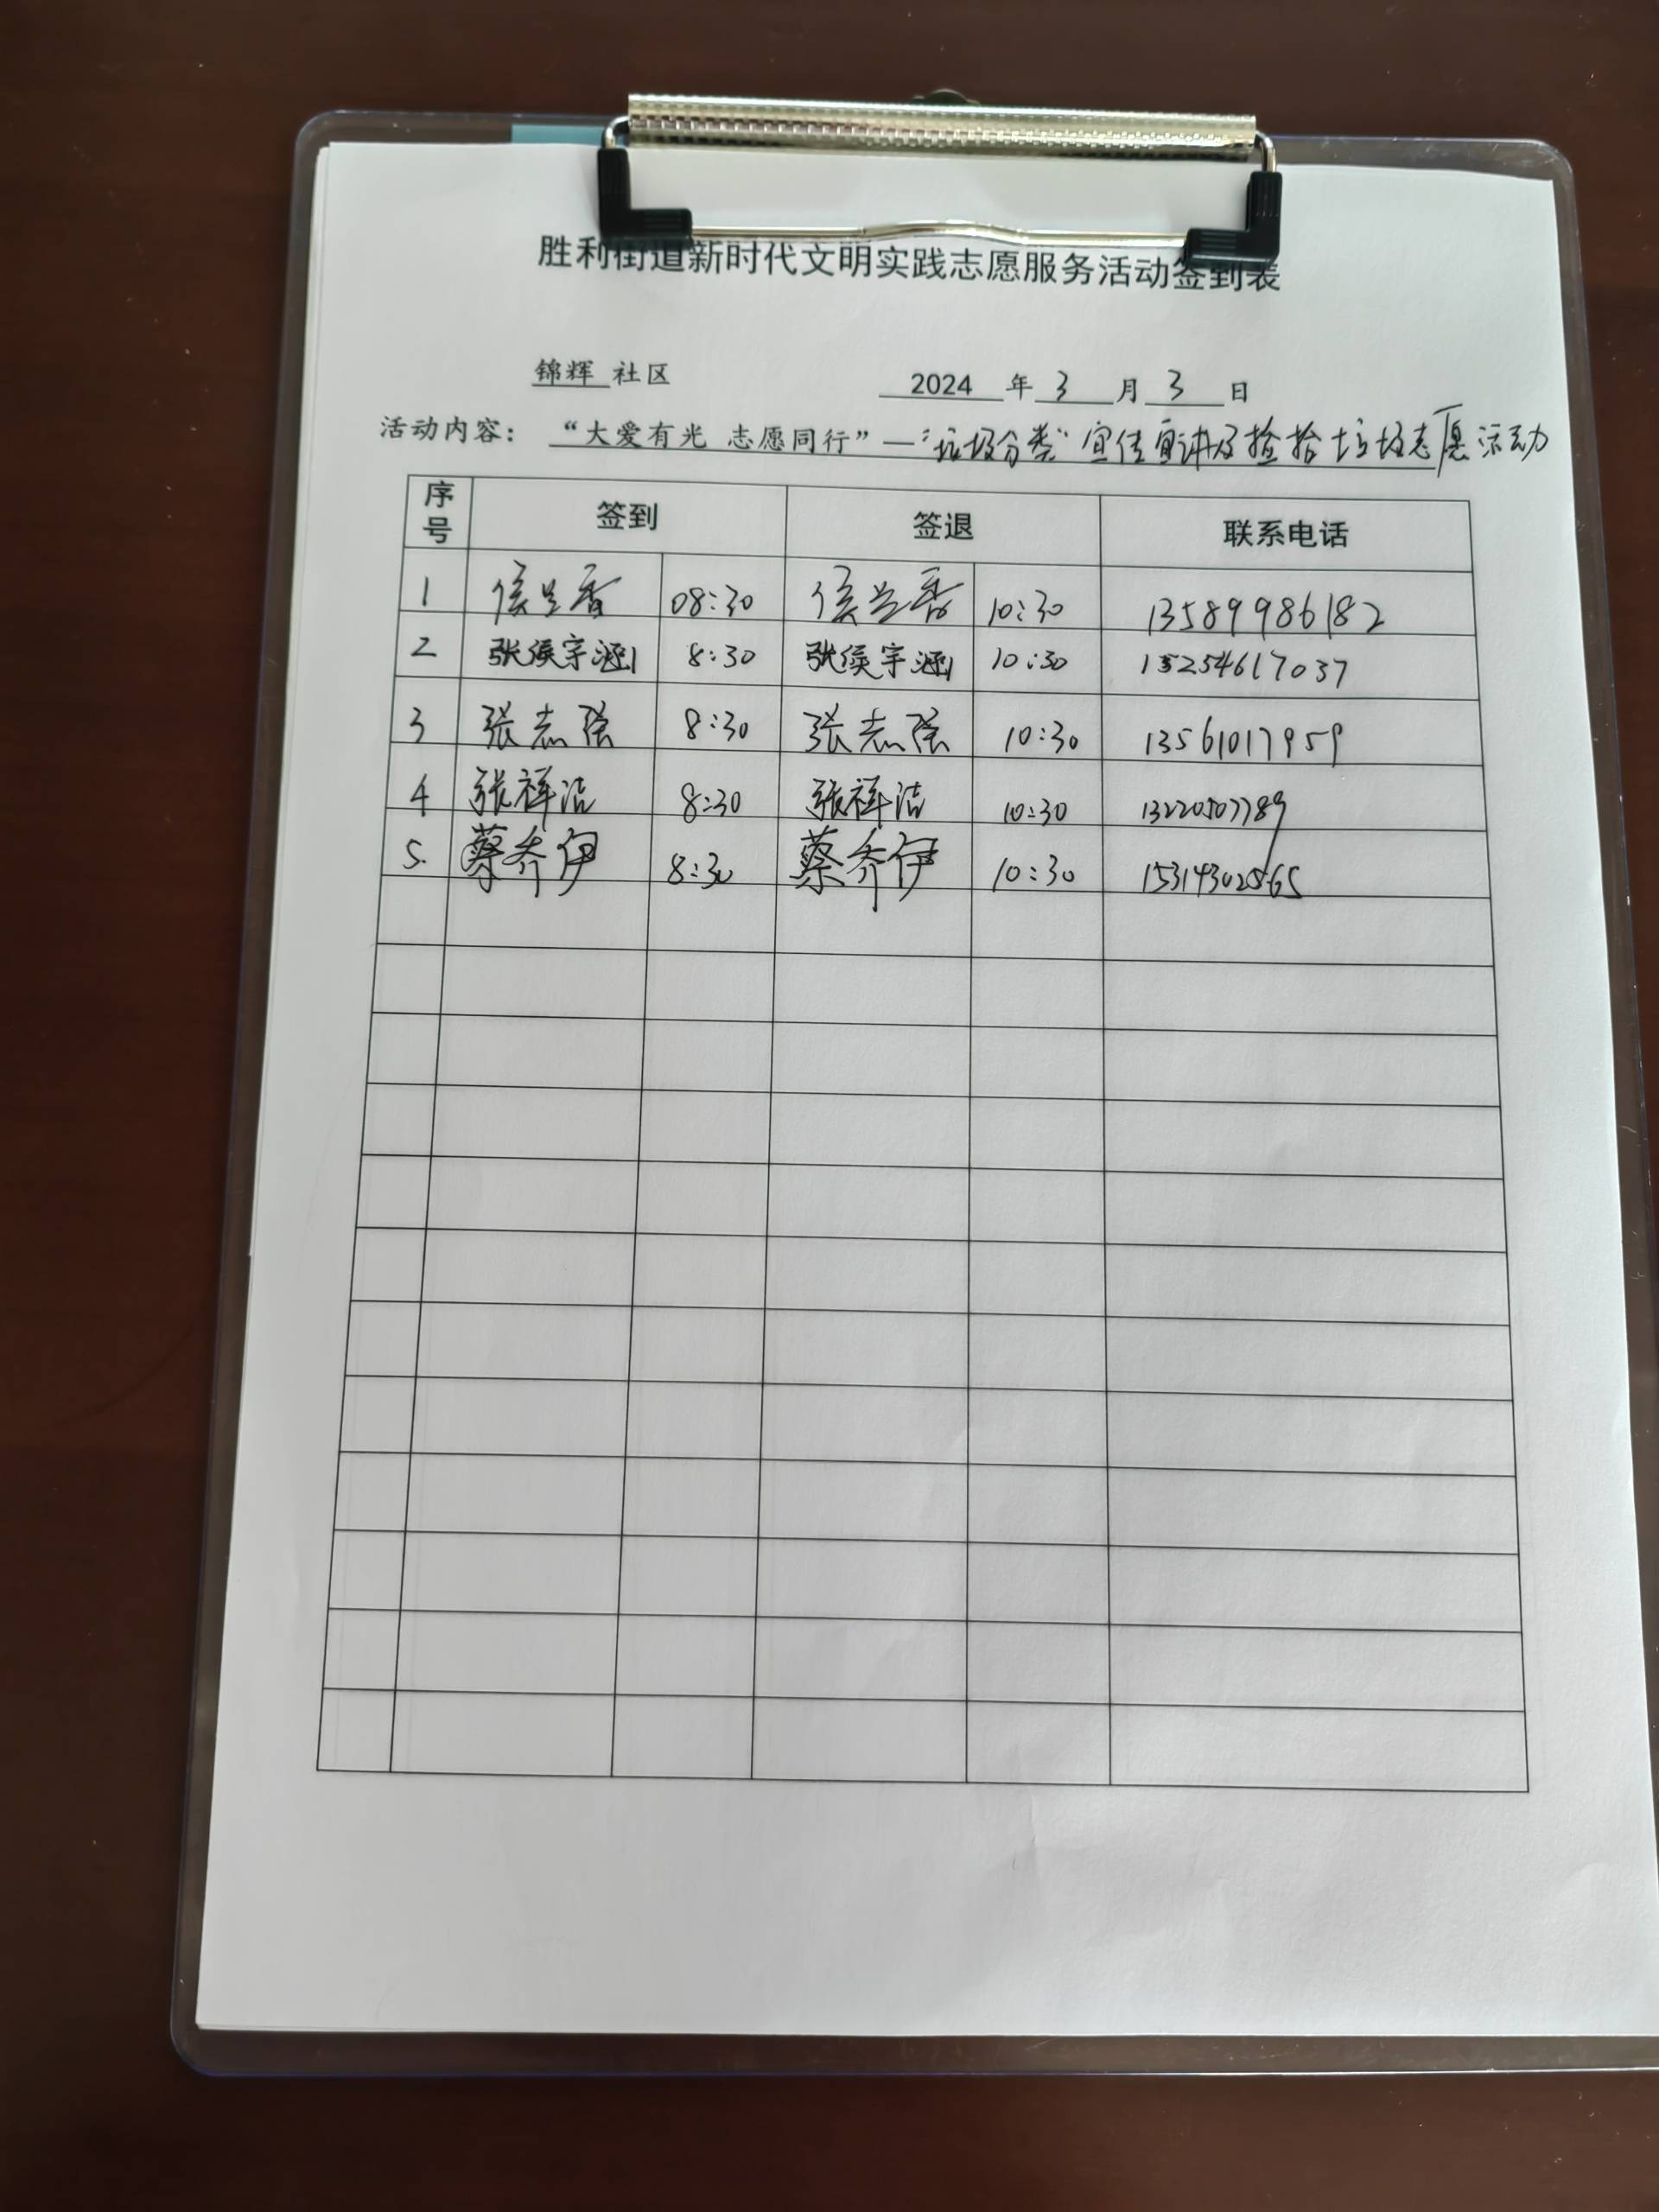 胜利街道新时代文明实践志愿服务活动签到表
锦辉 社区 2024 年 3 月 3 日
活动内容: “大爱有光 志愿同行”—“垃圾分类”宣传宣讲及捡拾垃圾志愿活动
序号 签到 签退 联系电话
1 侯兰香 08:30 侯兰香 10:30 13589986182
2 张侯宇涵 8:30 张侯宇涵 10:30 15254617037
3 张志强 8:30 张志强 10:30 13561017959
4 张祥洁 8:30 张祥洁 10:30 13220507789
5. 蔡乔伊 8:30 蔡乔伊 10:30